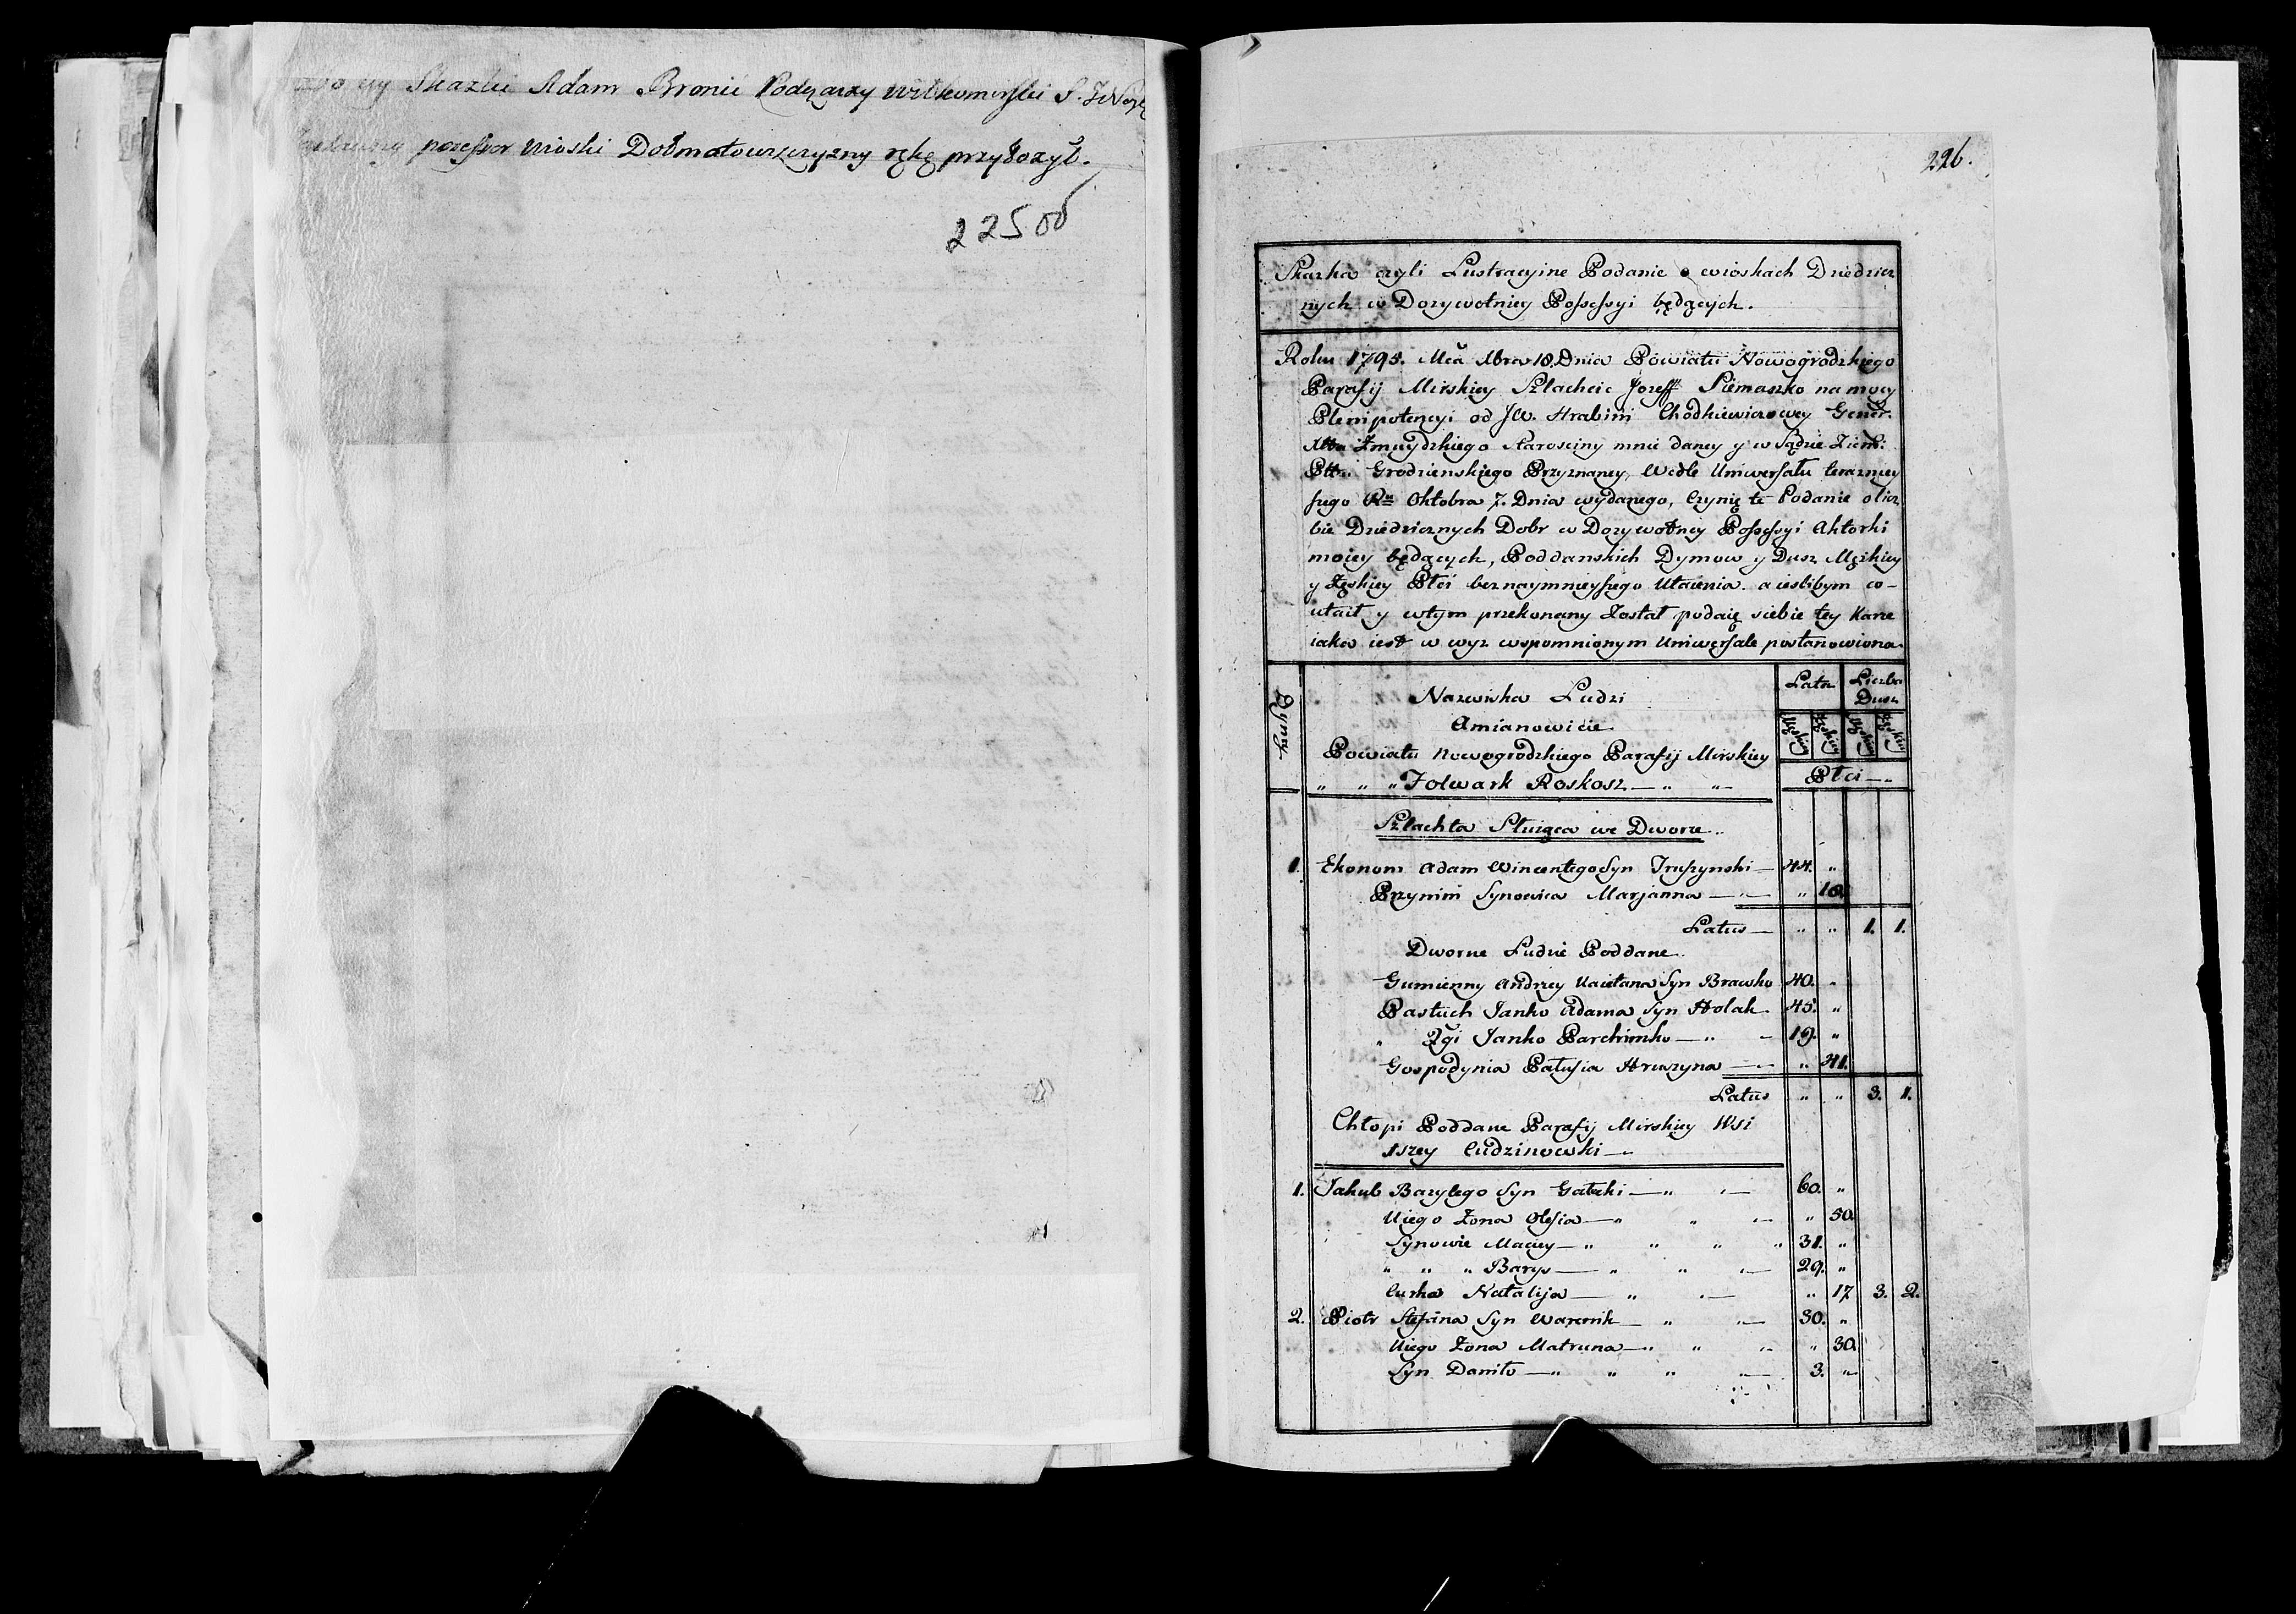 Skazki Adam Bronic Podczaszy Wilkomirski S. JWoje
possessor wioski Dołmatowszczyzny rękę przyłożył.
225 об
226.
Skazka czyli Lustracyine Podanie o wioskach Dziedzicz
nych w Dozywotniey Possessyi będących.
Roku 1795. Mca Xbra 18. Dnia Powiatu Nowogrodzkiego
Parafij Mirskiey Szlachcic Jozeff Siemaszko na mocy
Plenipotencyi od JW. Hrabini Chodkiewiczowey Gener.
Xttwa Zmuydzkiego Starosciny mnie daney y w Sądzie Ziem:
Pttu Grodzienskiego Przyznaney, Wedle Uniwersału terazniey
szego Rku Oktobra 7. Dnia wydanego, Czynię te Podanie o licz
bie Dziedzicznych Dobr w Dozywotney Possessyi Aktorki
moiey będących, Poddanskich Dymow y Dusz Męzkiey
y Zęskiey Płci bez naymnieyszego Utaienia. a ieslibym co-
utaił y wtym przekonany Został podaię siebie tey Karze
iaka iest w wyz wspomnionym Uniwersale postanowiona.
Dymy
Nazwiska Ludzi
Amianowicie
Powiatu Nowogrodzkiego Parafij Mirskiey
" " " Folwark Roskosz — " "—
Lata
Liczba Dusz
Męskiey Zęskiey Męskiey Zęskiey
Płci —
Szlachta Służąca we Dworze
1. Ekonom Adam Wincentego Syn Truszynski — 44. "
Przynim Synowica Marjanna — " 18.
Latus — " " 1. 1.
Dworne Ludzie Poddane
Gumienny Andrzey Kaietana Syn Brawko 40. "
Pastuch Janko Adama Syn Holak 45. "
" 2gi Janko Parchimko — " — 19. "
Gospodynia Patusia Hruszyna — " 41.
Latus " " 3. 1.
Chłopi Poddane Parafij Mirskiey Wsi
1szey Cudzinowski —
1. Jakub Bazylego Syn Gatecki — " " — 60. "
Uiego Zona Olesia — " " " — " 50.
Synowie Maciey — " " " " 31. "
" " " Barys — " " " — 29. "
Curka Natalija — " " — " 17 3. 2.
2. Piotr Stefana Syn Warenik — " " — 30. "
Uiego Zona Matruna — " " " " 30.
Syn Daniło — " " " " — 3. "